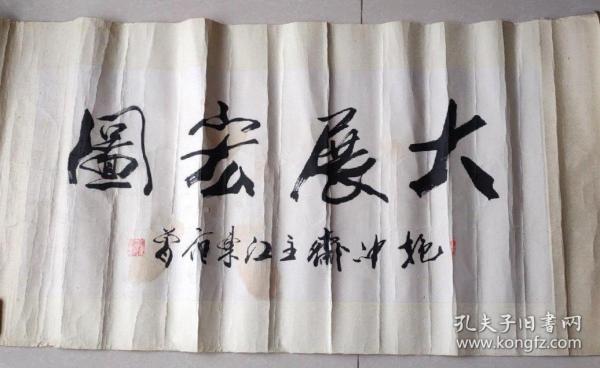 大展宏圖
抱冲齋主江東
孔夫子旧书网
www.kongfz.com